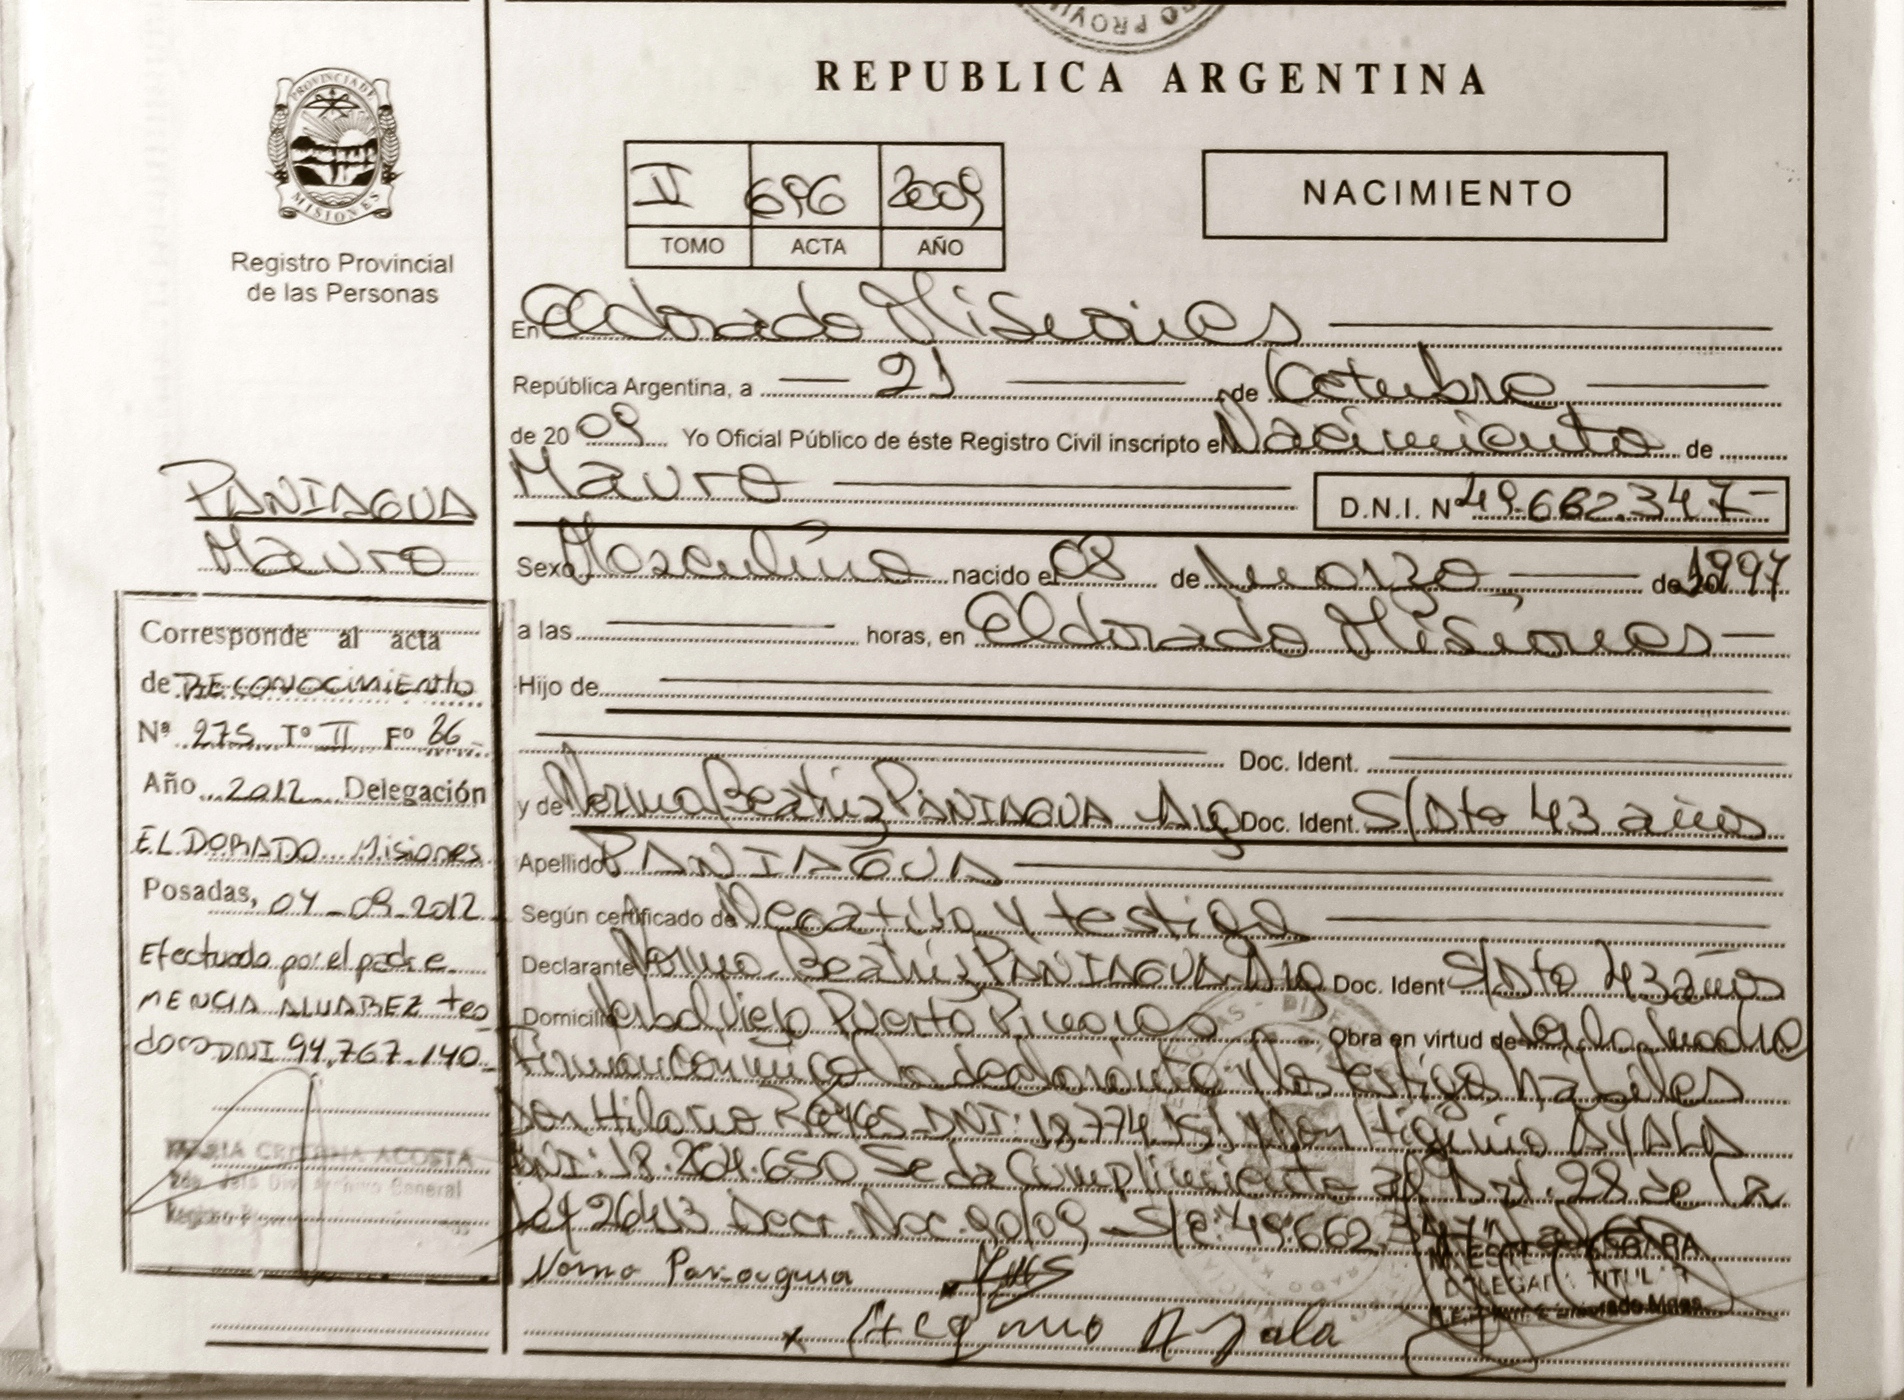 PROVINCIA DE
MISIONES
Registro Provincial
de las Personas
PANIAGUA
Mauro
Corresponde al acta
de RECONOCIMIENTO
Nº 275 Tº II Fº 26
Año 2012 Delegación
ELDORADO Misiones
Posadas, 04-09-2012
Efectuado por el padre
MENCIA ALVAREZ teo
doro DNI 94.767.140
MARIA CRISTINA ACOSTA
Archivo General
REPUBLICA ARGENTINA
II 696 2009
TOMO ACTA AÑO
NACIMIENTO
En Eldorado Misiones
República Argentina, a 21 de Octubre
de 2009 Yo Oficial Público de éste Registro Civil inscripto el Nacimiento de
Mauro D.N.I. Nº 49.662.347-
Sexo Masculino nacido el 08 de marzo de 1997
a las horas, en Eldorado Misiones
Hijo de
Doc. Ident.
y de Norma Beatriz PANIAGUA Arg Doc. Ident. S/Dto 43 años
Apellido PANIAGUA
Según certificado de Negativo y testigo
Declarante Norma Beatriz PANIAGUA Arg Doc. Ident S/Dto 43 años
Domicilio Puerto Obra en virtud de Ser la madre
Firman conmigo la declarante y los testigos hábiles
Don Hilario Reyes DNI: 18.774. y Don Higinio AYALA
DNI: 18.264.650 Se da Cumplimiento al Art. 28 de la
Ley 26413 Decr. Nac. 90/09 S/R: 49.662.347
Norma Paniagua
DELEGADA TITULAR
x Higinio Ayala